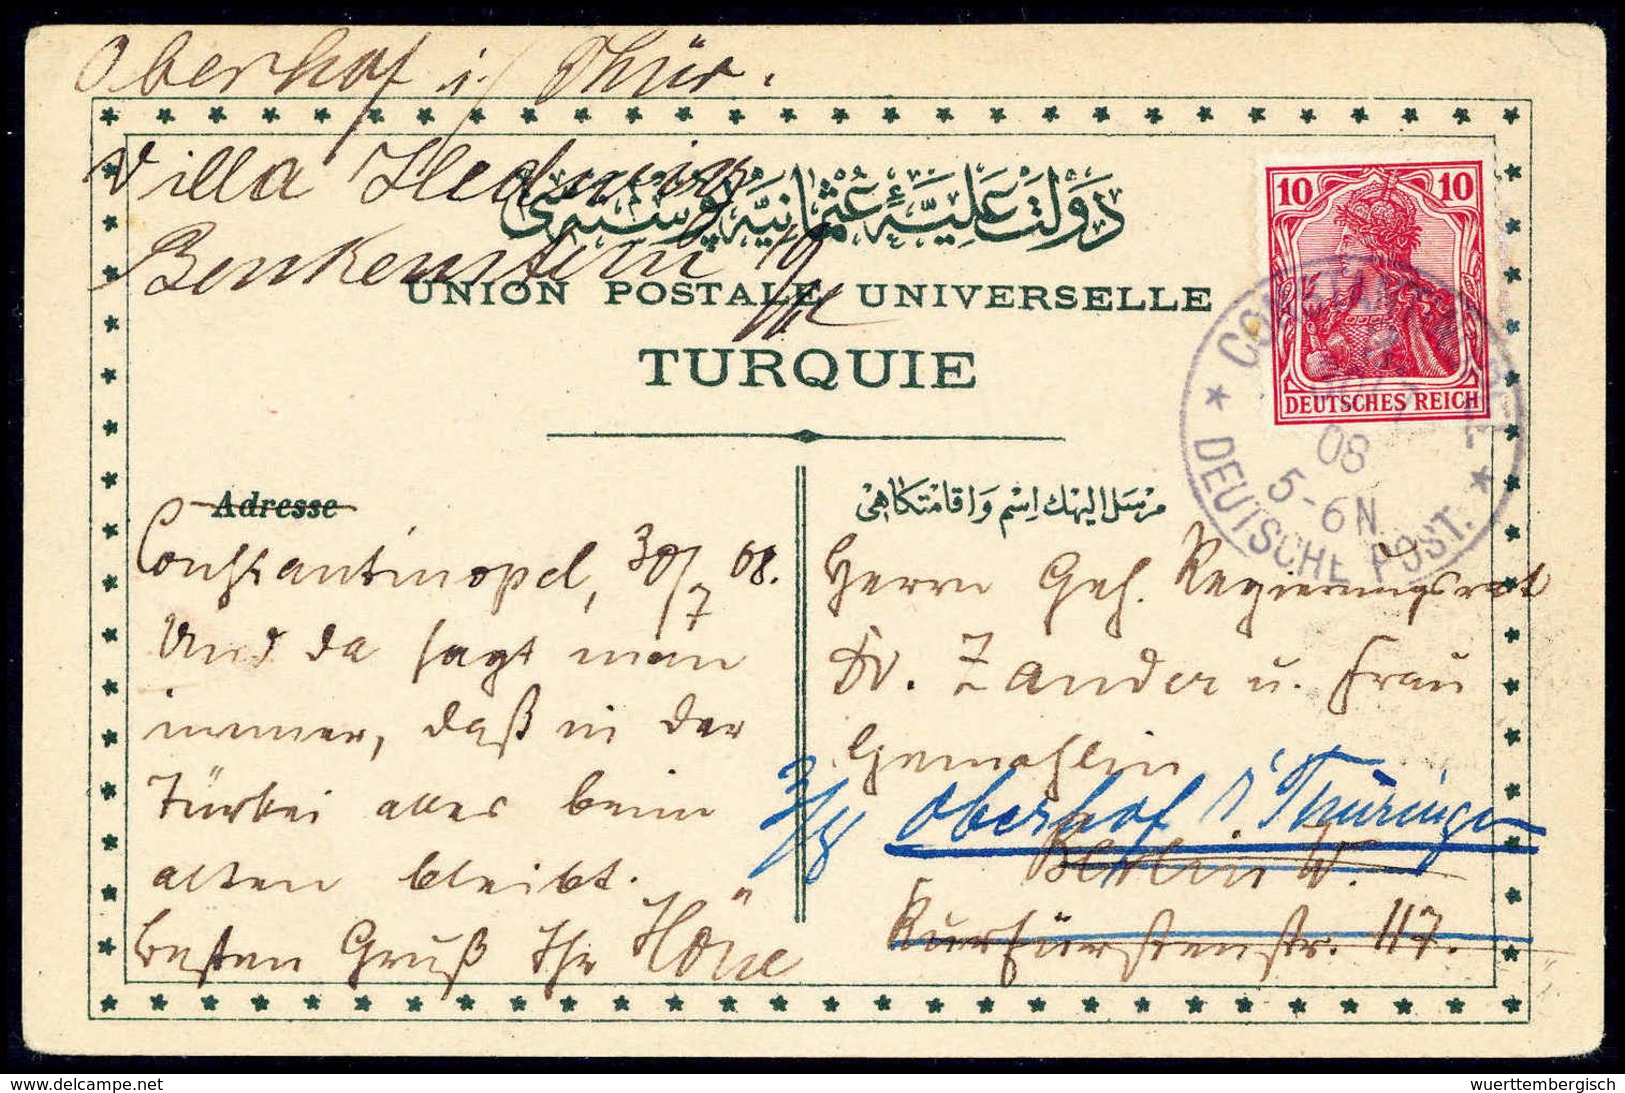 Oberhof i/ Thür.
Villa Hedwig
دولت علیهٔ عثمانیه پوسته سی
UNION POSTALE UNIVERSELLE
TURQUIE
10 10
DEUTSCHES REICH
CONSTANTINOPEL
08
5-6N
DEUTSCHE POST.
Adresse
مرسل الیهك اسم و اقامتكاهی
Constantinopel, 30/7 08.
Und da sagt man
immer, daß in der
Türkei alles beim
alten bleibt.
Besten Gruß Ihr
Herrn Geh. Regierungsrat
Dr. Zander u. Frau
Gemahlin
3/8 Oberhof i/Thüringen
Berlin W.
Kurfürstenstr. 117.
delcampe.net
wuerttembergisch